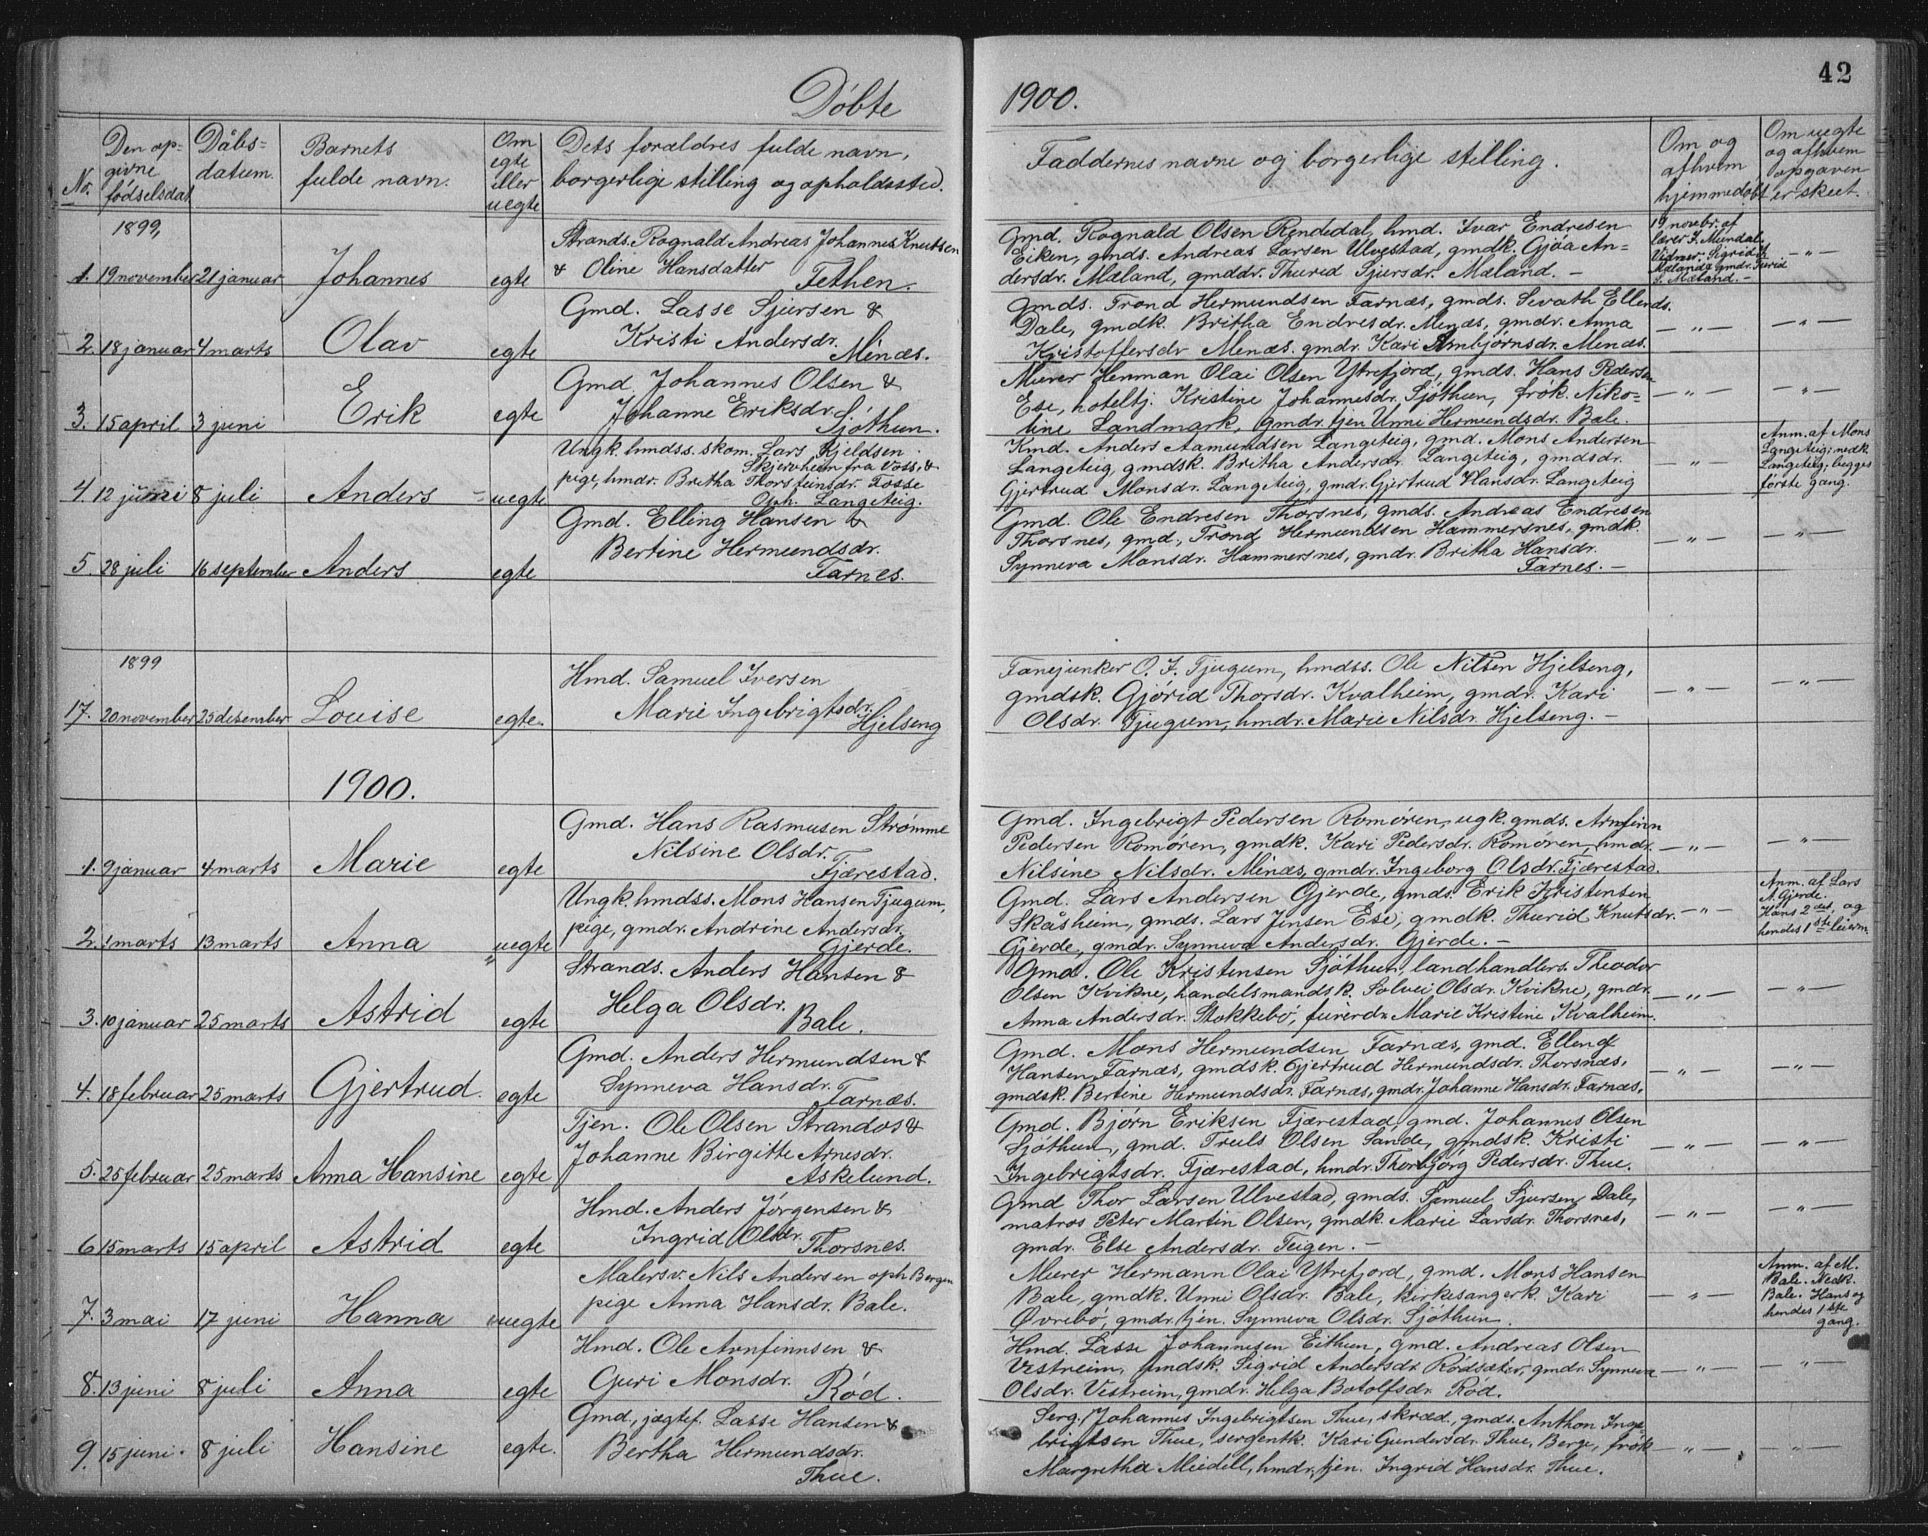 42
Döbte 1900.
No.
Den op-
givne
födselsdat
Dåbs-
datum.
Barnets
fulde navn.
Om
egte
eller
uegte
Dets forældres fulde navn,
borgerlige stilling og opholdssted.
Faddernes navne og borgerlige stilling.
Om og
afhvem
hjemmedöbt
Om uegte
og afhvem
opgaven
er skeet.
1899,
1. 19 november 21 januar Johannes egte
Strands. Rognald Andreas Johannes Knutsen
& Oline Hansdatter Fethen.
Gmd. Rognald Olsen Rendedal, hmd. Ivar Endresen
Eiken, gmds. Andreas Larsen Ulvestad, gmdk. Gjöa An-
dersdr. Mæland, gmddr. Thurid Sjursdr. Mæland. —
19 novebr. af
lærer I. Mundal.
Vidner: Sigrid K
Mæland & gmdr. Turid
S. Mæland. —
— „ —
2. 18 januar 4 marts Olav egte
Gmd. Lasse Sjursen &
Kristi Andersdr.
Menæs.
Gmds. Trond Hermundsen Farnæs, gmds. Sevath Ellends.
Dale, gmdk. Britha Endresdr. Menæs, gmdr. Anna
Kristoffersdr Menæs. gmdr. Kari Arnbjörnsdr. Menæs.
— „ — — „ —
3. 15 april 3 juni Erik egte
Gmd. Johannes Olsen &
Johanne Eriksdr.
Sjöthun.
Murer Herman Olai Olsen Ytrefjord, gmds. Hans Pedersen
Ese, hoteltj. Kristine Johannesdr. Sjöthun, frök. Niko-
line Landmark, gmdr. tjen Unni Hermundsdr. Bale.
— „ — — „ —
4. 12 juni 8 juli Anders uegte
Ungk. hmdss. skom. Lars Kjeldsen
Skjervheim fra Voss, &
pige, hmdr. Britha Thorsteinsdr. Fosse
Oph. Langeteig.
Kmd. Anders Aamundsen Langeteig, gmd. Mons Andersen
Langeteig, gmdsk. Britha Andersdr. Langeteig, gmdsdr.
Gjertrud Monsdr. Langeteig, gmdr. Gjertrud Hansdr. Langeteig
— „ —
Anm. af Mons
Langeteig; nedk.
Langeteig; begges
förste gang.
5. 28 juli 16 september Anders egte
Gmd. Elling Hansen &
Bertine Hermundsdr.
Farnes.
Gmd. Ole Endresen Thorsnes, gmds. Andreas Endresen
Thorsnes, gmd. Trond Hermundsen Hammersnes, gmdk.
Synneva Monsdr. Hammersnes, gmdr. Britha Hansdr.
Farnes. —
— „ — — „ —
1899
17. 20 november 25 desember Louise egte.
Hmd. Samuel Iversen
Marie Ingebrigtsdr.
Hjelseng
Fanejunker O. I. Tjugum, hmdss. Ole Nilsen Hjelseng,
gmdsk. Gjörid Thorsdr. Kvalheim, gmdr. Kari
Olsdr. Tjugum, hmdr. Marie Nilsdr. Hjelseng. —
— „ — — „ —
1900.
1. 9 januar 4 marts Marie egte
Gmd. Hans Rasmusen Strömme
Nilsine Olsdr.
Fjærestad.
Gmd. Ingebrigt Pedersen Romören, ugk. gmds. Arnfinn
Pedersen Romören, gmdk. Kari Pedersdr. Romören, hmdr.
Nilsine Nilsdr. Menæs, gmdr. Ingeborg Olsdr. Fjærestad.
— „ — — „ —
2. 1 marts 13 marts Anna uegte
Ungk. hmdss. Mons Hansen Tjugum,
pige, gmdr. Andrine Andersdr.
Gjerde.
Gmd. Lars Andersen Gjerde, gmds. Erik Kristensen
Skåsheim, gmds. Lars Jensen Ese, gmdk. Thurid Knutsdr.
Gjerde, gmdr. Synneva Andersdr. Gjerde. —
— „ —
Anm. af Lars
A. Gjerde.
Hans 2det og
hendes 1ste leierm.
3. 10 januar 25 marts Astrid egte
Strands. Anders Hansen &
Helga Olsdr.
Bale.
Gmd. Ole Kristensen Sjöthun, landhandlers. Theodor
Olsen Kvikne, handelsmandsk. Solvei Olsdr. Kvikne, gmdr.
Anna Andersdr. Stokkebö, furerdr. Marie Kristine Kvalheim.
— „ — — „ —
4. 18 februar 25 marts Gjertrud. egte
Gmd. Anders Hermundsen &
Synneva Hansdr.
Farnæs.
Gmd. Mons Hermundsen Farnæs, gmd. Ellend
Hansen Farnæs, gmdsk. Gjertrud Hermundsdr. Thorsnæs,
gmdsk. Bertine Hermundsdr. Farnæs, gmdr. Johanne Hansdr. Farnæs.
— „ — — „ —
5. 25 februar 25 marts Anna Hansine egte
Tjen. Ole Olsen Strandos &
Johanne Birgitte Arnesdr.
Askelund.
Gmd. Björn Eriksen Fjærestad, gmd. Johannes Olsen
Sjöthun, gmd. Truls Olsen Sande, gmdsk. Kristi
Ingebrigtsdr. Fjærestad, hmdr. Thorbjörg Pedersdr. Thue.
— „ — — „ —
6 15 marts 15 april Astrid egte
Hmd. Anders Jörgensen &
Ingrid Olsdr.
Thorsnes.
Gmd Thor Larsen Ulvestad, gmds. Samuel Sjursen Dale,
matros Peter Martin Olsen, gmdk. Marie Larsdr. Thorsnes,
gmdr. Else Andersdr. Teigen. —
— „ — — „ —
7. 3 mai 17 juni Hanna uegte
Malersv. Nils Andersen oph Bergen
pige Anna Hansdr. Bale.
Murer Hermann Olai Ytrefjord, gmd. Mons Hansen
Bale, gmdk. Unni Olsdr. Bale, kirkesangerk. Kari
Övrebö, gmdr. tjen. Synneva Olsdr. Sjöthun.
— „ —
Anm. af M.
Bale. Nedk.
Bale. Hans og
hendes 1ste
gang.
8. 13 juni 8 juli Anna egte
Hmd. Ole Arnfinnsen &
Guri Monsdr. Röd.
Hmd. Lasse Johannesen Eithun, gmd. Andreas Olsen
Vestreim, gmdsk. Sigrid Andersdr Rödsæter, gmdr. Synneva
Olsdr. Vestreim, gmdr. Helga Botolfsdr. Röd.
— „ — — „ —
9. 15 juni. 8 juli Hansine egte.
Gmd, jægtef. Lasse Hansen &
Bertha Hermundsdr.
Thue.
Serg. Johannes Ingebrigtsen Thue, skræd., gmds. Anthon Inge-
brigtsen Thue, sergentk. Kari Gundersdr. Thue, Berge, frök
Margretha Meidell, hmdr. tjen. Ingrid Hansdr. Thue.
— „ — — „ —